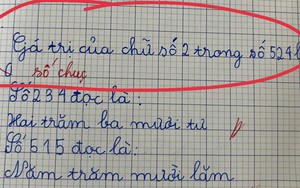 Gá trị của chữ số 2 trong số 524
số chục
Số 234 đọc là:
Hai trăm ba mươi tư
Số 515 đọc là:
Năm trăm mười lăm